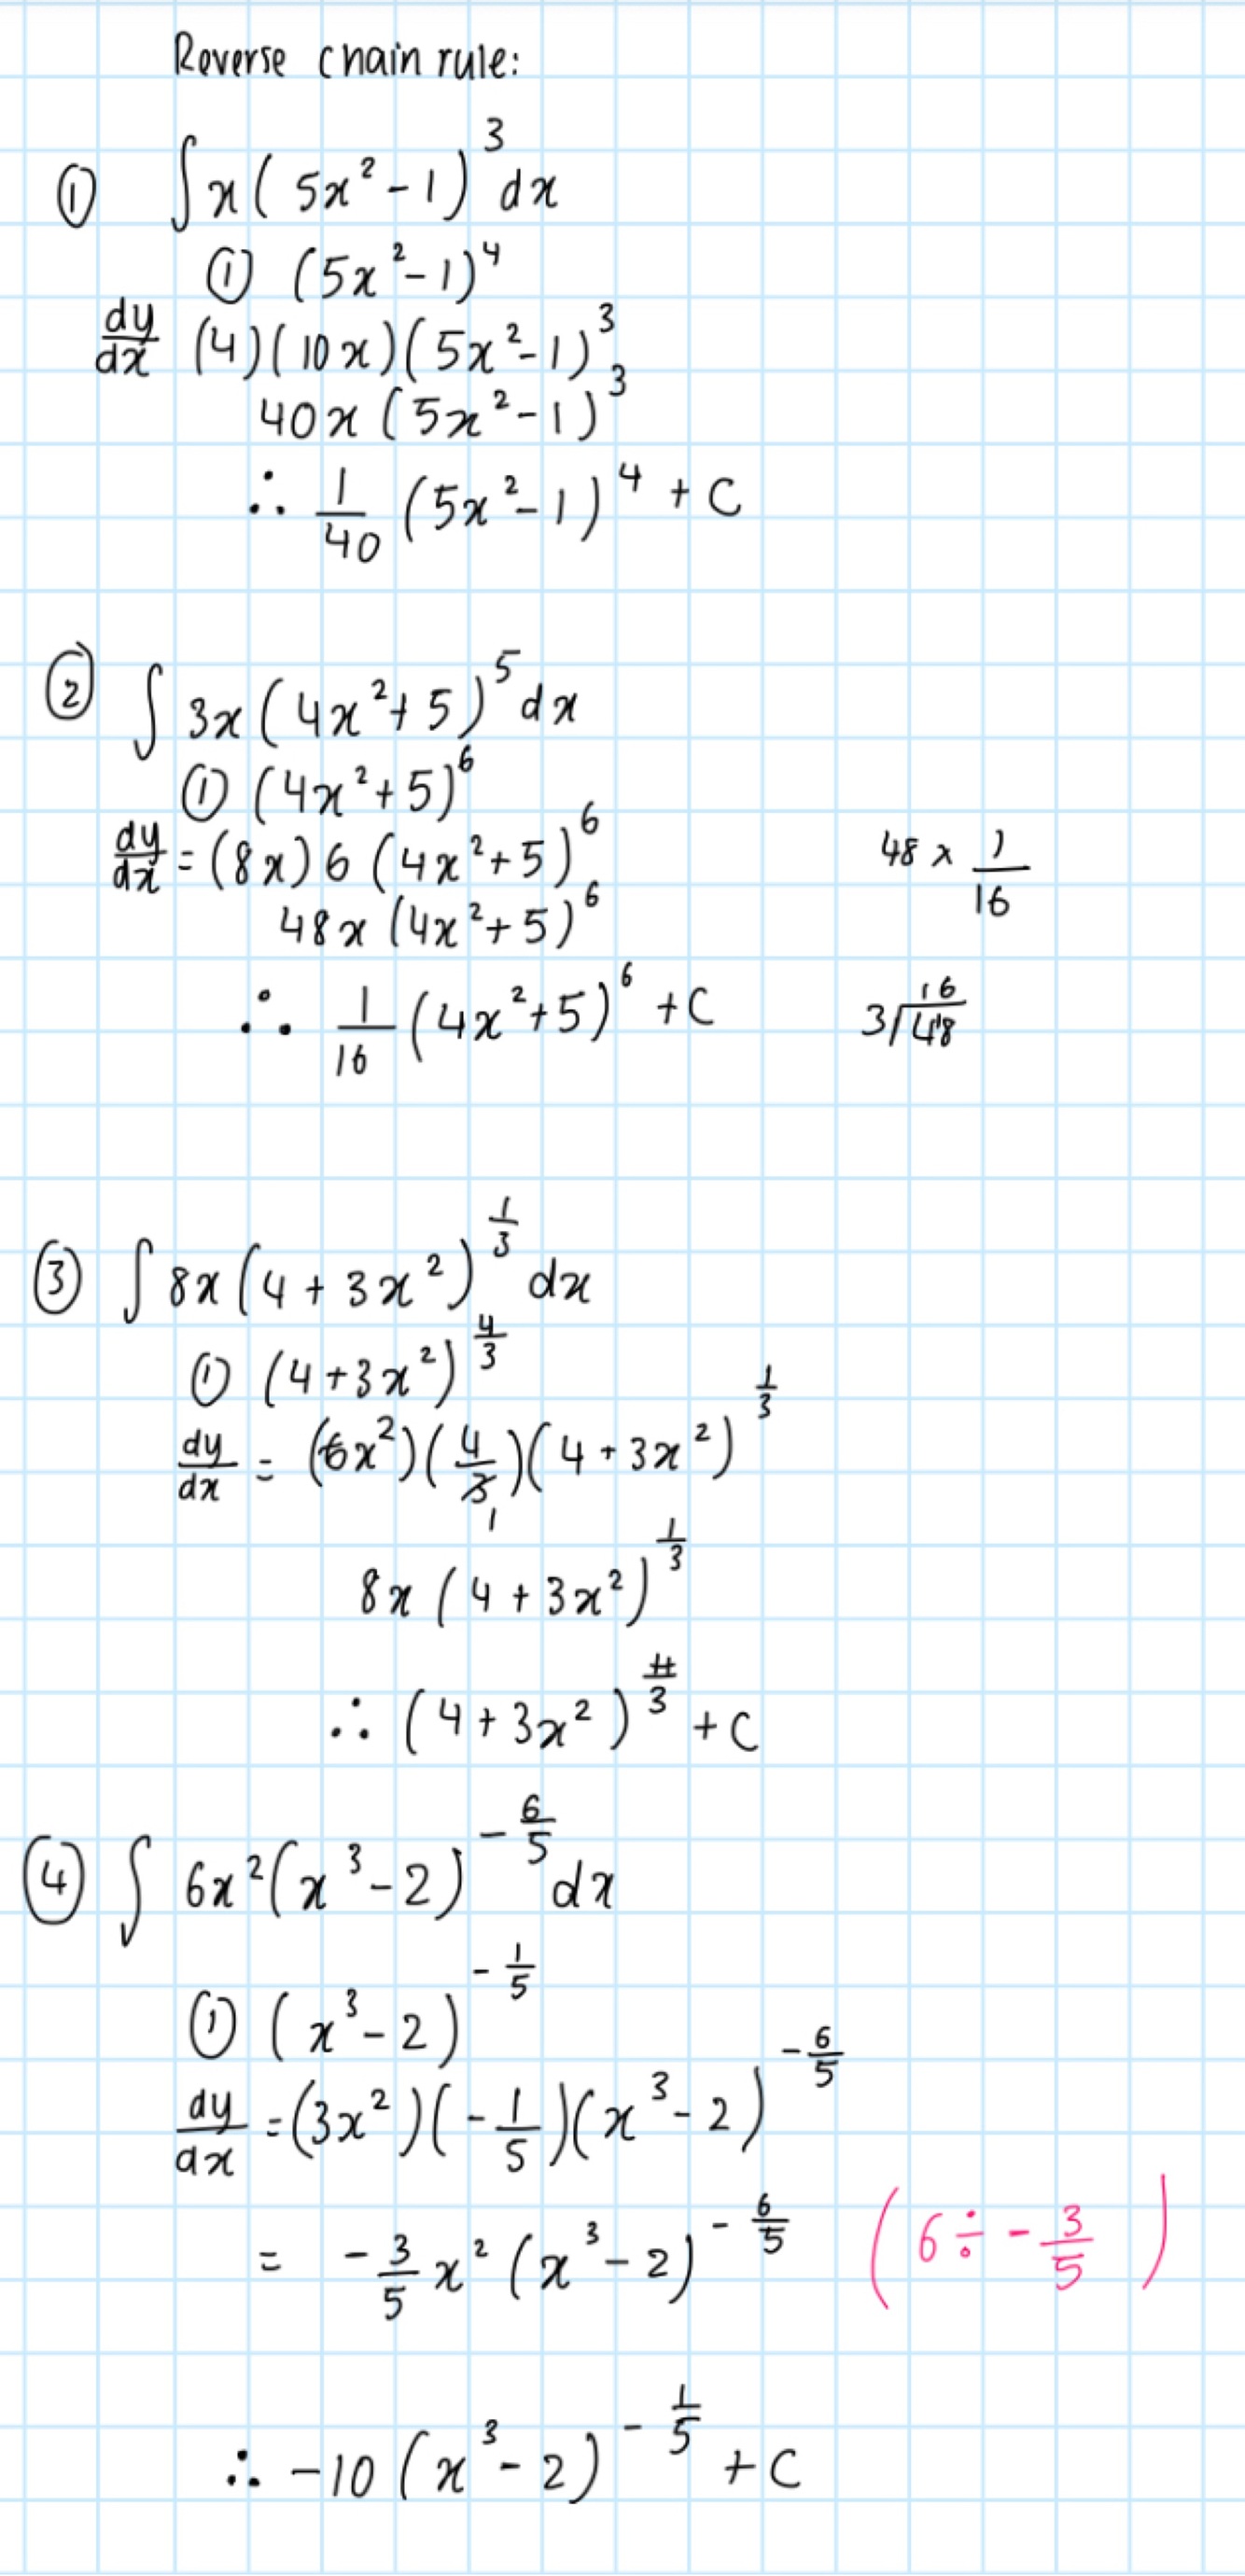 Reverse chain rule:
① ∫x(5x²-1)³dx
① (5x²-1)⁴
dy/dx (4)(10x)(5x²-1)³
40x(5x²-1)³
∴ 1/40 (5x²-1)⁴ + C
② ∫3x(4x²+5)⁵dx
① (4x²+5)⁶
dy/dx = (8x)6(4x²+5)⁶ 48 x 1/16
48x(4x²+5)⁶
∴ 1/16 (4x²+5)⁶ + C 3/48 16
③ ∫8x(4+3x²)^(1/3) dx
① (4+3x²)^(4/3)
dy/dx = (6x²)(4/3)(4+3x²)^(1/3)
1
8x(4+3x²)^(1/3)
∴ (4+3x²)^(4/3) + C
④ ∫6x²(x³-2)^(-6/5) dx
① (x³-2)^(-1/5)
dy/dx = (3x²)(-1/5)(x³-2)^(-6/5)
= -3/5 x²(x³-2)^(-6/5) (6÷-3/5)
∴ -10(x³-2)^(-1/5) + C